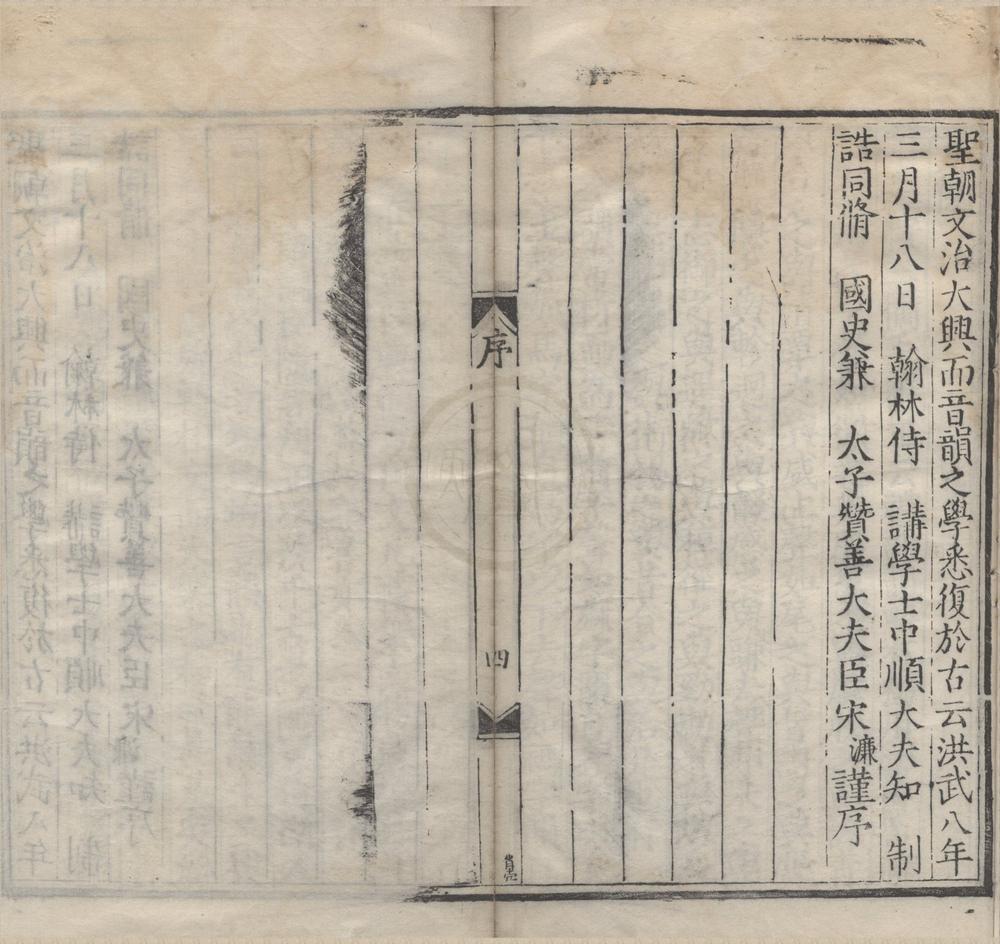 聖朝文治大興而音韻之學悉復於古云洪武八年
三月十八日　翰林侍　講學士中順大夫知　制
誥同脩　國史兼　太子贊善大夫臣宋濂謹序
序
四